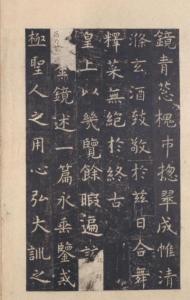 鏡青葱槐市揔翠成帷清
滌玄酒致敬於茲日合舞
釋菜無絕於終古
皇上以幾覽餘暇遍該
金鏡述一篇永垂鑒戒
極聖人之用心弘大訓之